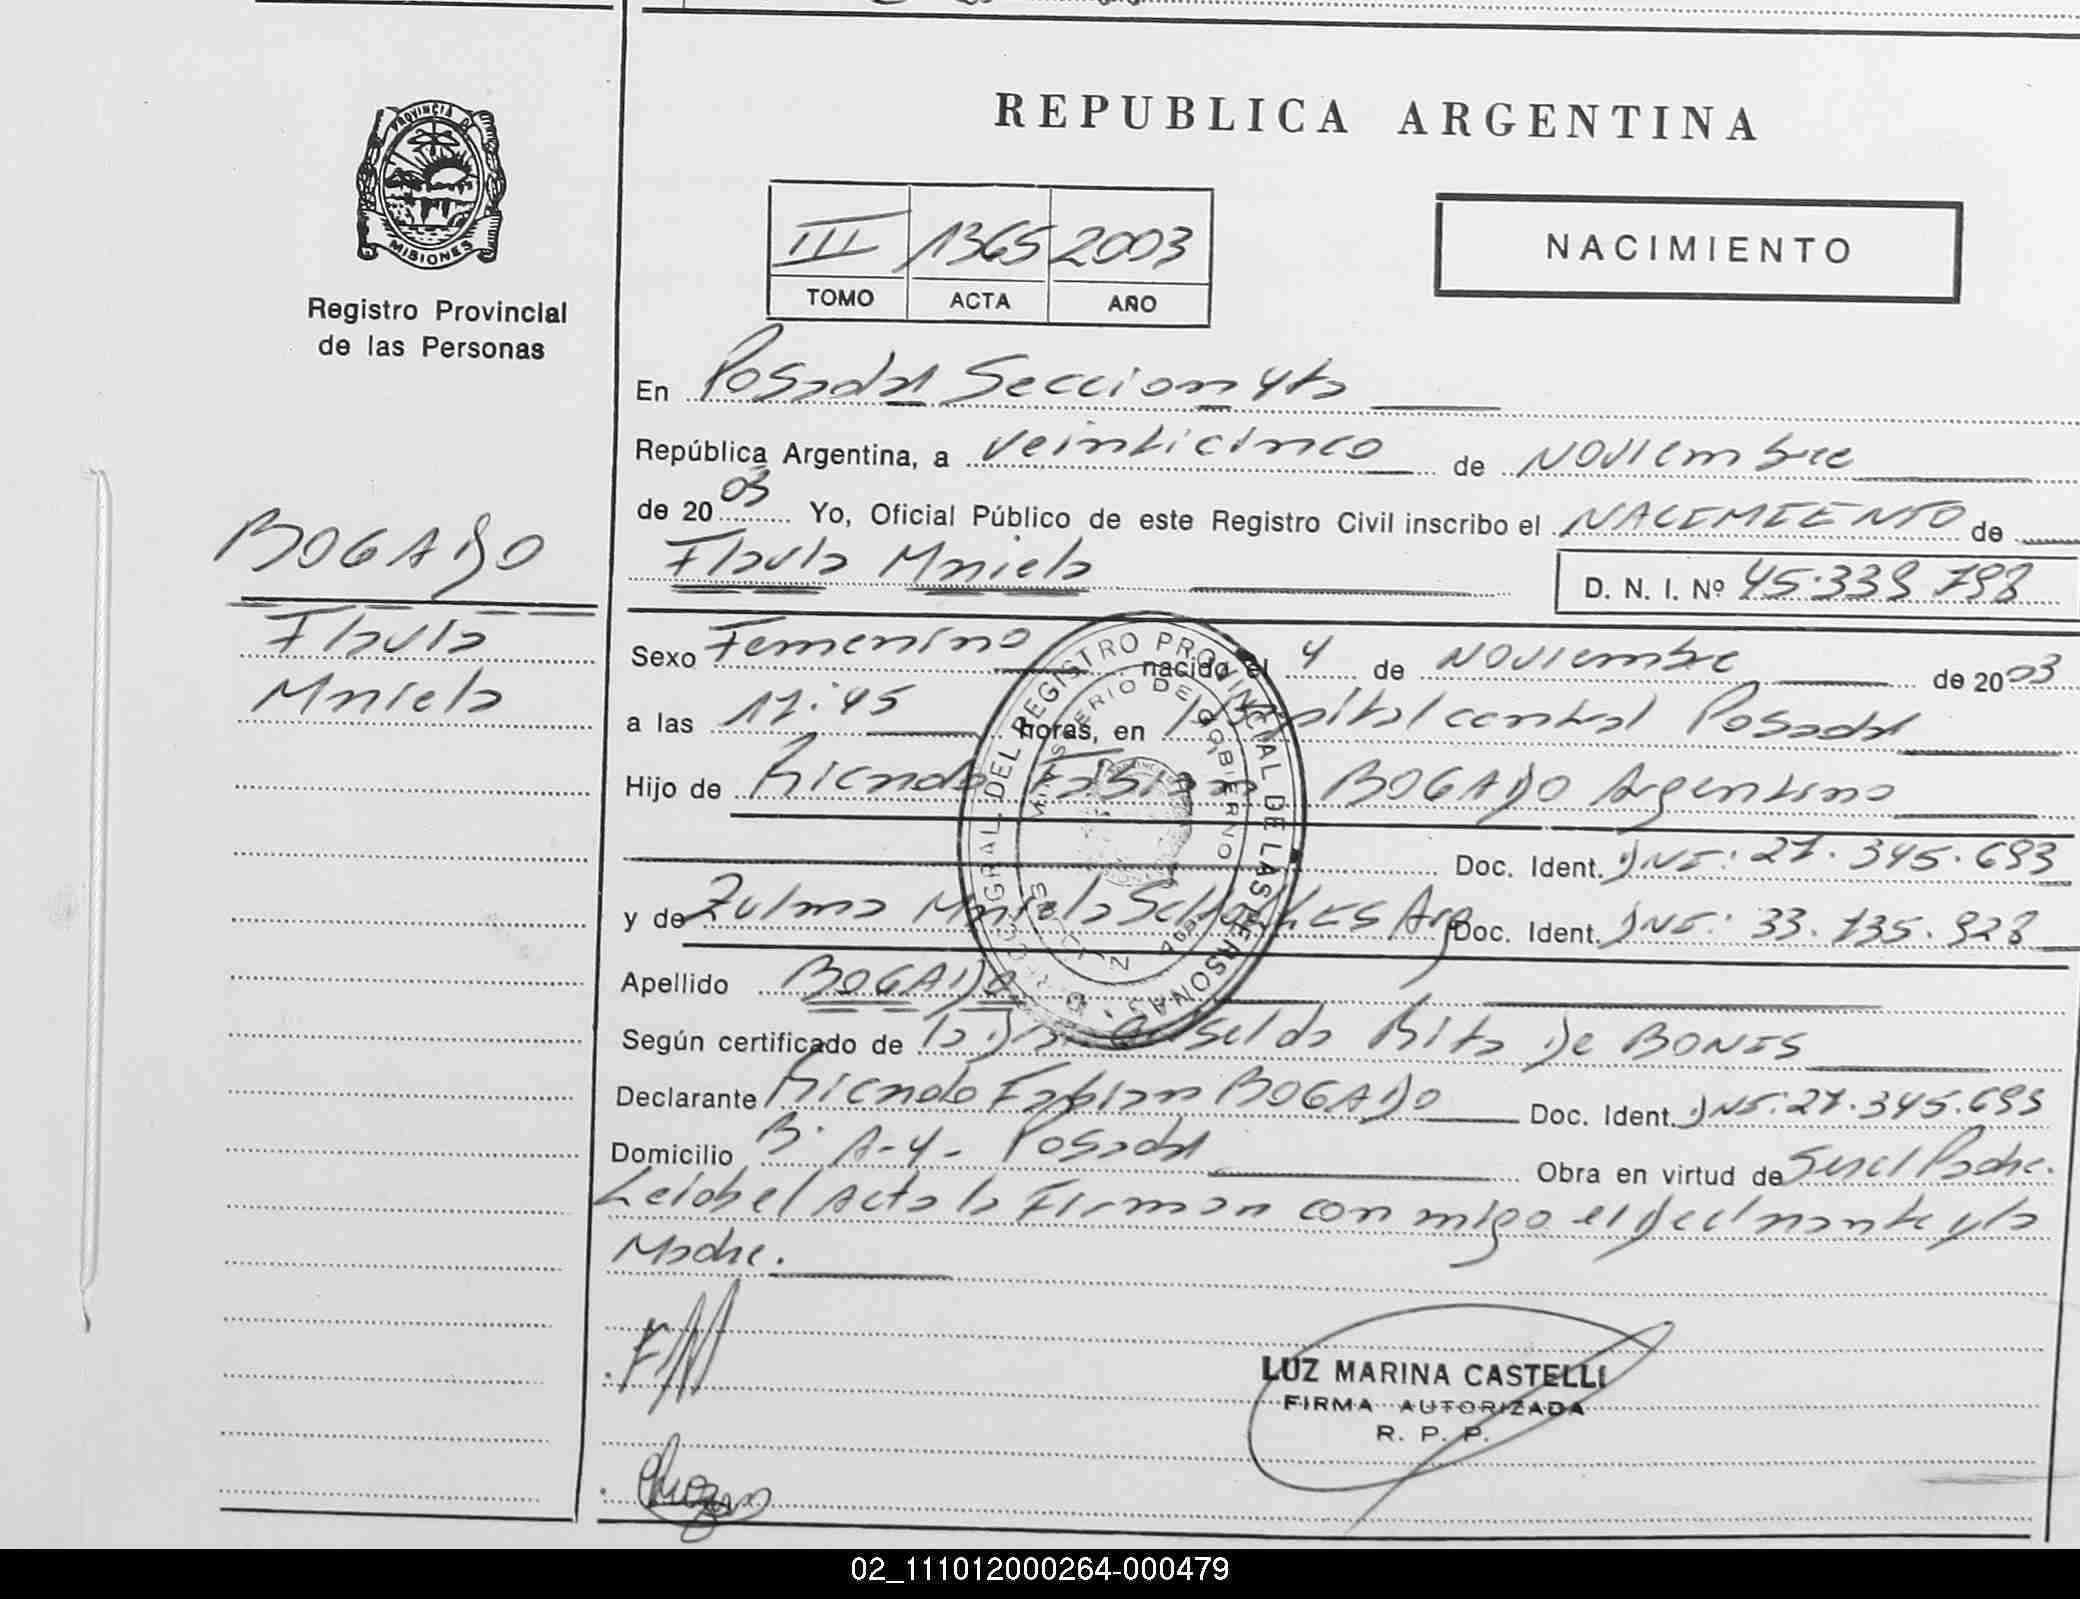 REPUBLICA ARGENTINA
PROVINCIA DE MISIONES
Registro Provincial
de las Personas
III 1365 2003
TOMO ACTA AÑO
NACIMIENTO
En Posadas Seccion 4ta
República Argentina, a veinticinco de Noviembre
de 2003 Yo, Oficial Público de este Registro Civil inscribo el NACIMIENTO de
Flavia Mariela
D. N. I. Nº
BOGADO
Flavia
Mariela
Sexo Femenino nacido el 4 de Noviembre de 2003
a las 17:45 horas, en Hospital central Posadas
Hijo de Ricardo Fabian BOGADO Argentino
Doc. Ident. DNI: 27.345.693
y de Zulma Mariela Arg Doc. Ident. DNI: 33.735.928
Apellido BOGADO
Según certificado de la Dra. Griselda Rita De BONIS
Declarante Ricardo Fabian BOGADO Doc. Ident. DNI: 27.345.693
Domicilio B. A-4- Posadas Obra en virtud de Ser el Padre.
Leida el Acta la Firman conmigo el Declarante y la
Madre.
LUZ MARINA CASTELLI
FIRMA AUTORIZADA
R. P. P.
02_111012000264-000479